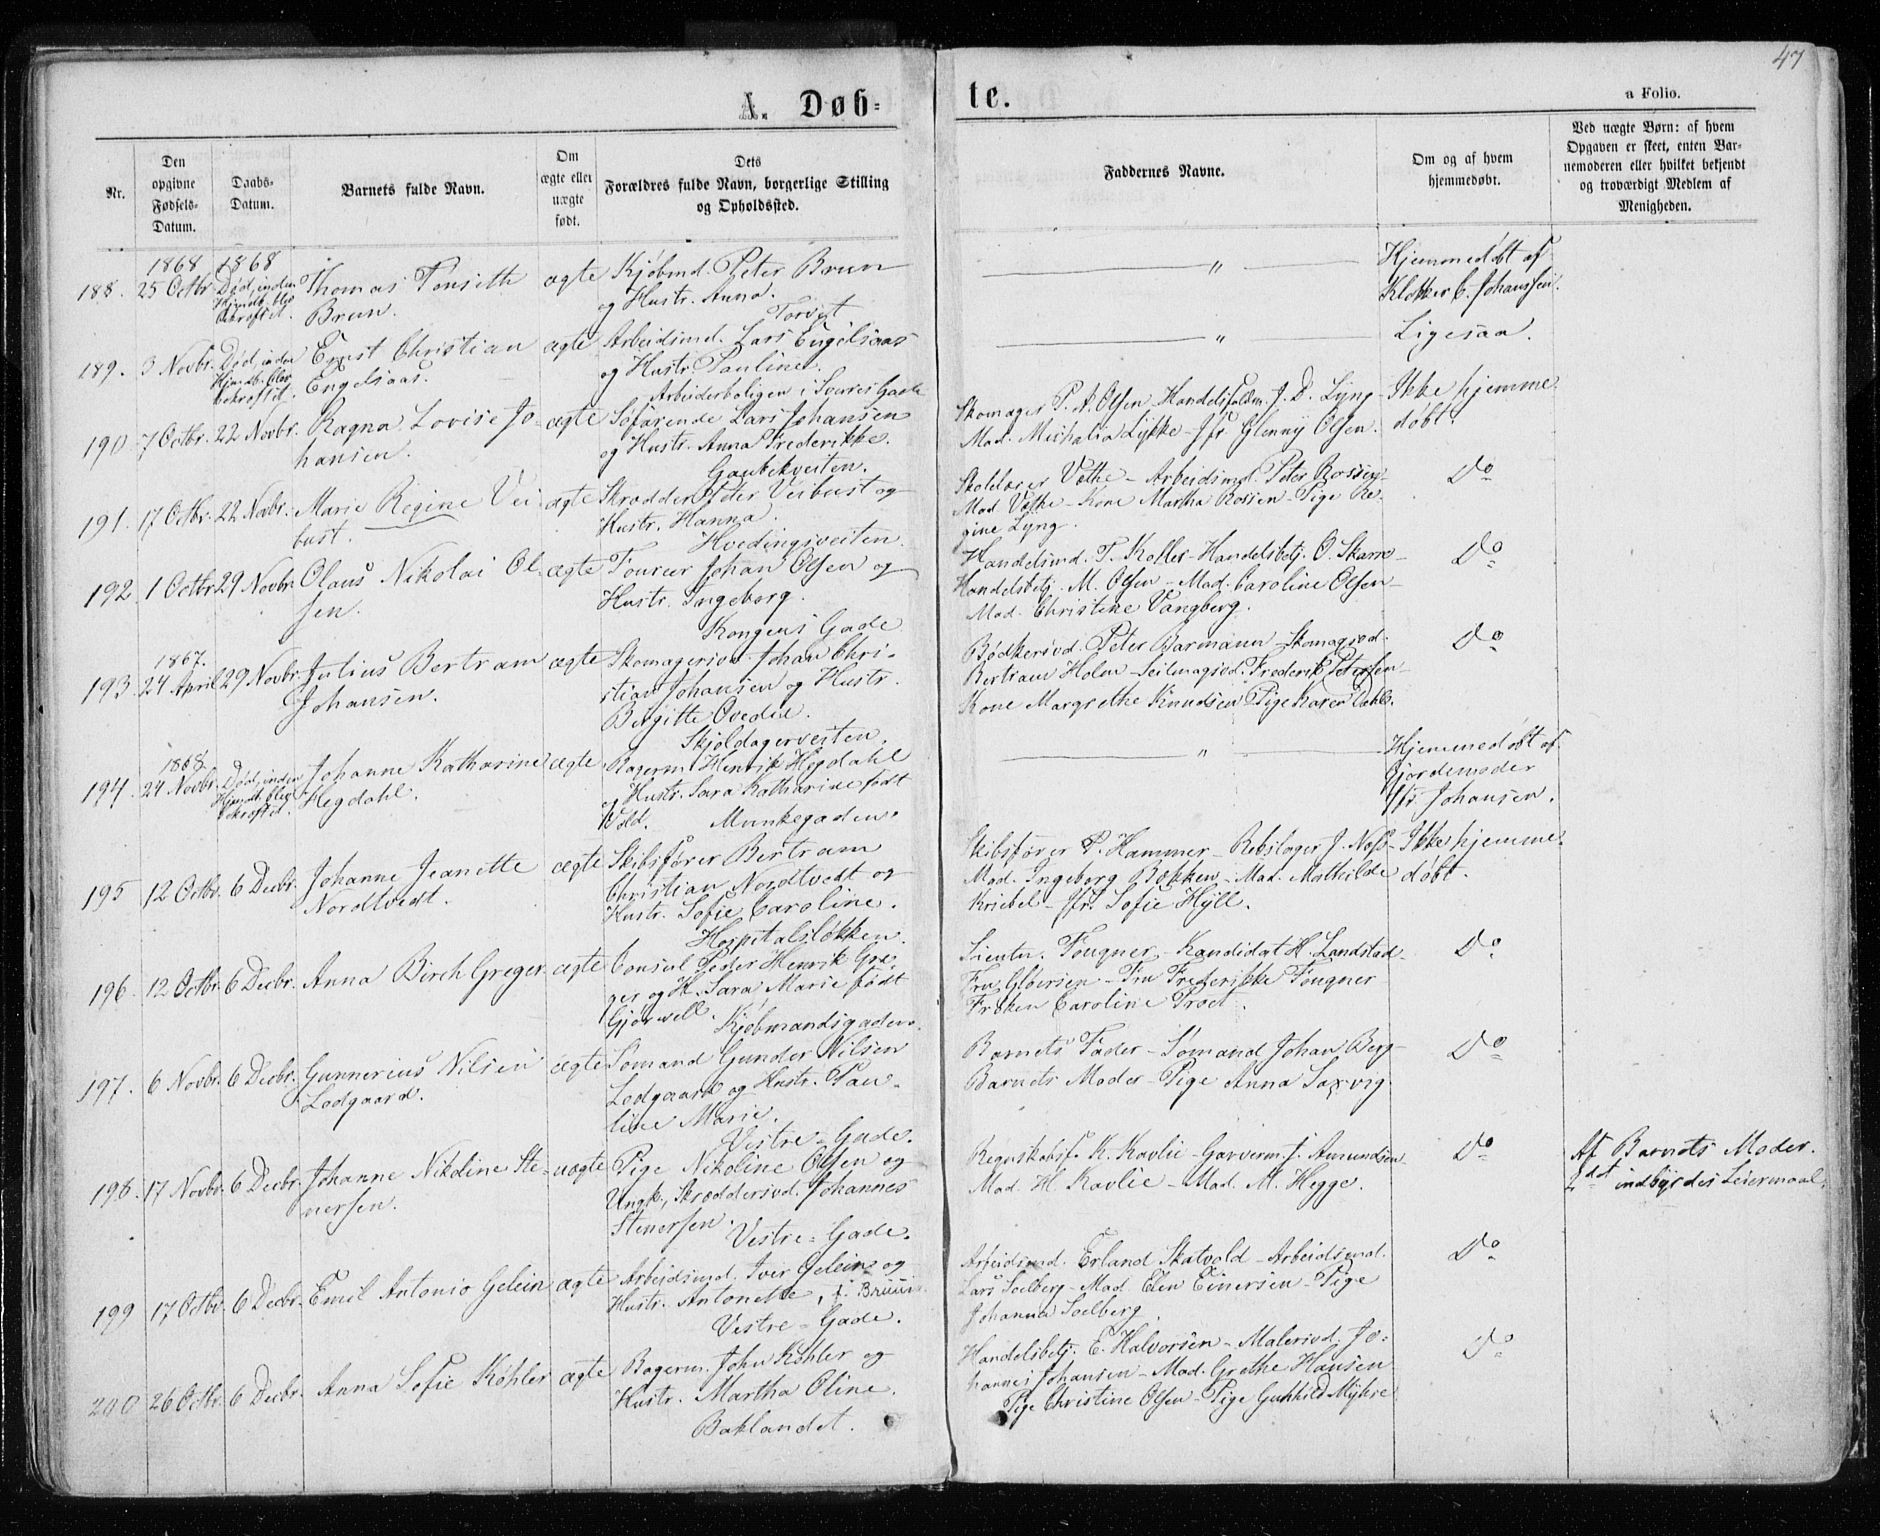 47
A. Døb=
te.
a Folio.
Nr.
Den
opgivne
Fødsels-
Datum.
Daabs-
Datum.
Barnets fulde Navn.
Om
ægte eller
uægte
født.
Dets
Forældres fulde Navn, borgerlige Stilling
og Opholdssted.
Faddernes Navne.
Om og af hvem
hjemmedøbt.
Ved uægte Børn: af hvem
Opgaven er skeet, enten Bar-
nemoderen eller hvilket bekjendt
og troværdigt Medlem af
Menigheden.
1868 1868
188. 25 Octbr. Død, inden
Hjemdb. blev
bekræftet.
Thomas Tonseth
Brun.
ægte
Kjøbmd. Peter Brun
og Hustr. Anna.
Torvet
"
Hjemmedøbt af
Klokker C. Johanssen.
189. 3 Novbr. Død, inden
Hjemdb. blev
bekræftet.
Ernst Christian
Engelsaas.
ægte
Arbeidsmd. Lars Engelsaas
og Hustr. Pauline.
Arbeiderboligen i Sverres Gade
"
Ligesaa.
190. 7 Octbr. 22 Novbr.
Ragna Lovise Jo-
hansen.
ægte
Søfarende Lars Johansen
og Hustr. Anna Frederikke.
Gaubekveiten.
Skomager P. A. Olsen - Handelsfuldm. J. D. Lyng -
Mad. Michalia Lykke - Jfr Glenny Olsen.
Ikke hjemme
døbt.
191. 17 Octbr. 22 Novbr.
Marie Regine Vei
bust.
ægte
Skrædder Peter Veibust og
Hustr. Hanna.
Hvedingsveiten.
Skolelærer Væthe - Arbeidsmd. Peter Rossen -
Mad Væthe - Kone Martha Rossen - Pige Re-
gine Lyng.
Do
192. 1 Octbr 29 Novbr.
Olaus Nikolai Ol-
sen.
ægte
Fourer Johan Olsen og
Hustr. Ingeborg.
Kongens Gade
Handelsmd. T. Koller - Handelsbetj. O. Skam -
Handelsbetj. M. Olsen - Mad. Caroline Olsen -
Mad. Christine Vangberg.
Do
1867.
193. 24 April 29 Novbr.
Julius Bertram
Johansen.
ægte
Skomagersvd. Johan Chri-
stian Johansen og Hustr.
Bergitte Ovedie.
Skjoldagerveiten.
Bødkersvd. Peter Barmann - Skomagsvd.
Bertram Holm - Seilmagsvd. Frederik Petersen -
Kone Margrethe Knudsen Pige Karen Dahl.
Do
1868.
194. 24 Novbr. Død, inden
Hjemdb. blev
bekræftet.
Johanne Katharine
Hegdahl.
ægte
Bagerm. Henrik Hegdahl
og Hustr. Sara Katharine født
Vold. Munkegaden.
"
Hjemmedøbt af
Gjordemoder
Jfr. Johansen.
195 12 Octbr. 6 Decbr.
Johanne Jeanette
Nordtvedt.
ægte
Skibsfører Bertram
Christian Nordtvedt og
Hustr. Sofie Caroline.
Hospitalsløkken.
Skibsfører P. Hammer - Rebslager J. Næss -
Mad. Ingeborg Bækken - Mad. Mathilde
Kriebel - Jfr. Sofie Hyll.
Ikke hjemme-
døbt.
196. 12 Octbr. 6 Decbr.
Anna Birch Greger
ægte
Consul Peder Henrik Gre-
ger og H. Sara Marie født
Gjørwell. Kjøbmandsgaden.
Lieutn. Fougner - Kandidat H. Landstad -
Fru Gløersen - Fru Frederikke Fougner
Frøken Caroline Troet.
Do
197. 6 Novbr. 6 Decbr.
Gunnerius Nilsen
Lodgaard.
ægte
Sømand Gunder Nilsen
Lodgaard og Hustr. Pau-
line Marie.
Vestre=Gade.
Barnets Fader - Sømand Johan Berg -
Barnets Moder - Pige Anna Saxvig.
Do
198. 17 Novbr. 6 Decbr.
Johanne Nikoline Ste-
nersen.
uægte
Pige Nikoline Olsen og
Ungk., Skræddersvd. Johannes
Stenersen. Vestre=Gade.
Regnskabsf. K. Kavlie - Garverm. J. Amundsen -
Mad. H. Kavlie - Mad. M. Hegge.
Do
Af Barnets Moder.
2det indbyrdes Leiermaal.
199 17 Octbr. 6 Decbr.
Emil Antonio Gelein
ægte
Arbeidsmd. Iver Gelein og
Hustr. Antonette, f. Bruun.
Vestre=Gade.
Arbeidsmd. Erland Skatvold - Arbeidsmd.
Lars Soelberg - Mad Elen Einersen - Pige
Johanna Soelberg.
Do
200 26 Octbr. 6 Decbr.
Anna Sofie Køhler
ægte
Bagerm. John Køhler og
Hustr. Martha Oline.
Baklandet.
Handelsbetj. E. Halvorsen - Malersvd. Jo-
hannes Johansen - Mad. Grethe Hansen
Pige Christine Olsen - Pige Gunhild Myhre
Do